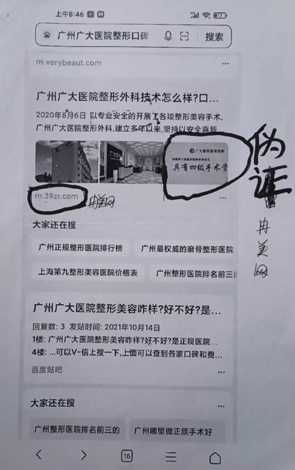 上午8:46
广州广大医院整形口碑
搜索
m.verybeaut.com
广州广大医院整形外科技术怎么样?口...
2020年8月6日 以专业安全的开展了各项整形美容手术,
广州广大医院整形外科,建立多年以来,坚持以安全喜新
广大整形美容医院
具有四级手术资
伪证
m.39zr.com
冉美网
冉美网
大家还在搜
广州正规整形医院排行榜
广州最权威的磨骨整形医院
上海第九整形美容医院价格表
广州整形医院排名前三
广州广大医院整形美容咋样?好不好?是...
回复数: 3 发贴时间: 2021年10月14日
1楼: 广州广大医院整形美容咋样?好不好?是正规医院...
4楼: ...可以V-信上搜一下,上面可以查到各家口碑和费...
百度贴吧
大家还在搜
广州整形医院排名前三的
广州哪里做正颌手术好
16